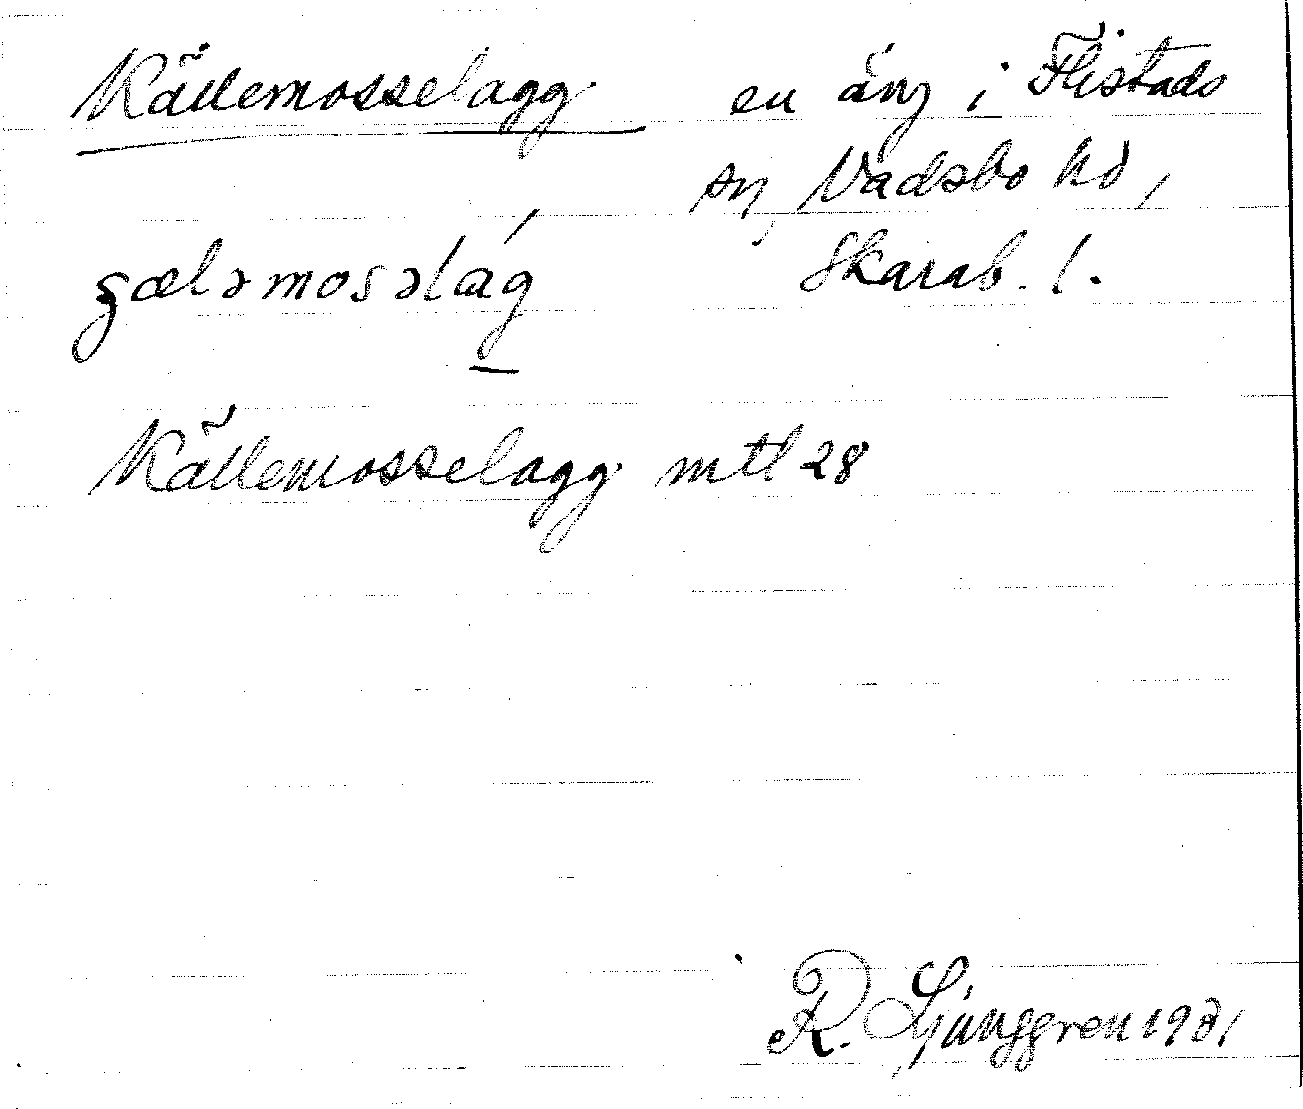 Källemosselagg en äng i Flistads
sn, Vadsbo hd,
Skarab. l.
Källemosselagg mtl 28
R. Ljunggren